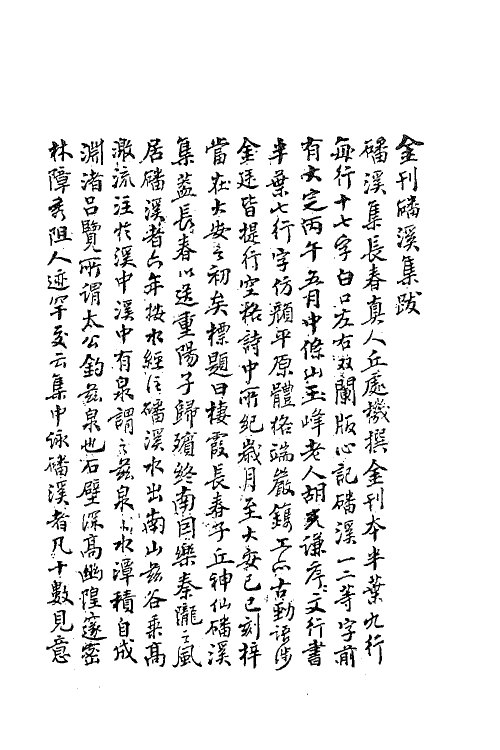 金刊磻溪集跋
磻溪集長春真人丘處機撰金刊本半葉九行
每行十七字白口左右双闌版心記磻溪一二等字前
有大定丙午五月中條山玉峰老人胡光謙序文行書
半葉七行字仿顏平原體格端嚴鐫工亦古勁語涉
金廷皆提行空格詩中所紀歲月至大安己巳刻梓
當在大安之初矣標題曰棲霞長春子丘神仙磻溪
集蓋長春以送重陽子歸殯終南因樂秦隴之風
居磻溪者六年按水經注磻溪水出南山茲谷乘高
激流注於溪中溪中有泉謂之茲泉泉水潭積自成
淵渚呂覽所謂太公釣茲泉也石壁深高幽隍邃密
林障秀阻人迹罕交云集中詠磻溪者凡十數見意